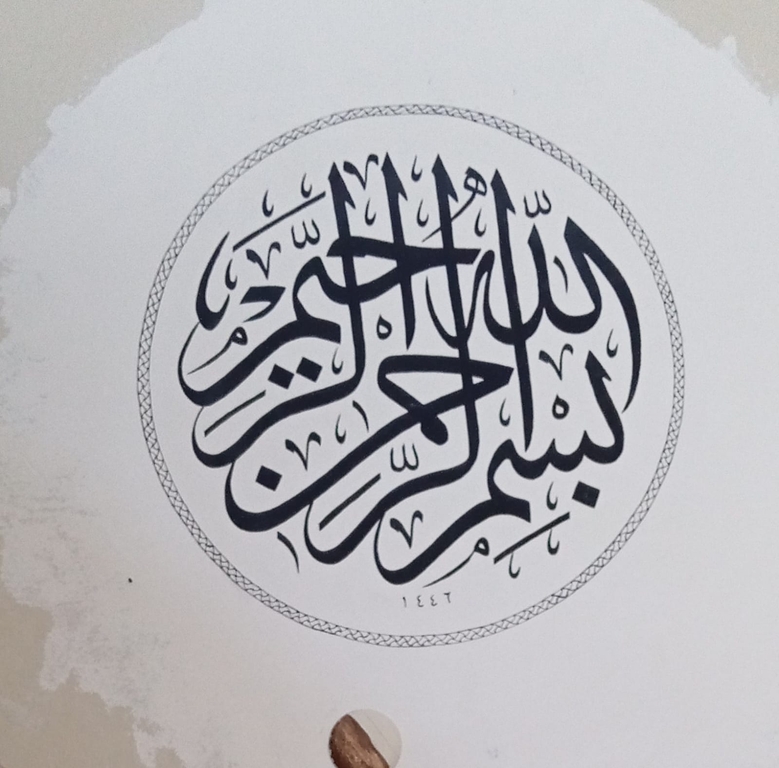 بِسْمِ اللّٰهِ الرَّحْمٰنِ الرَّحِيْمِ
١٤٤٦